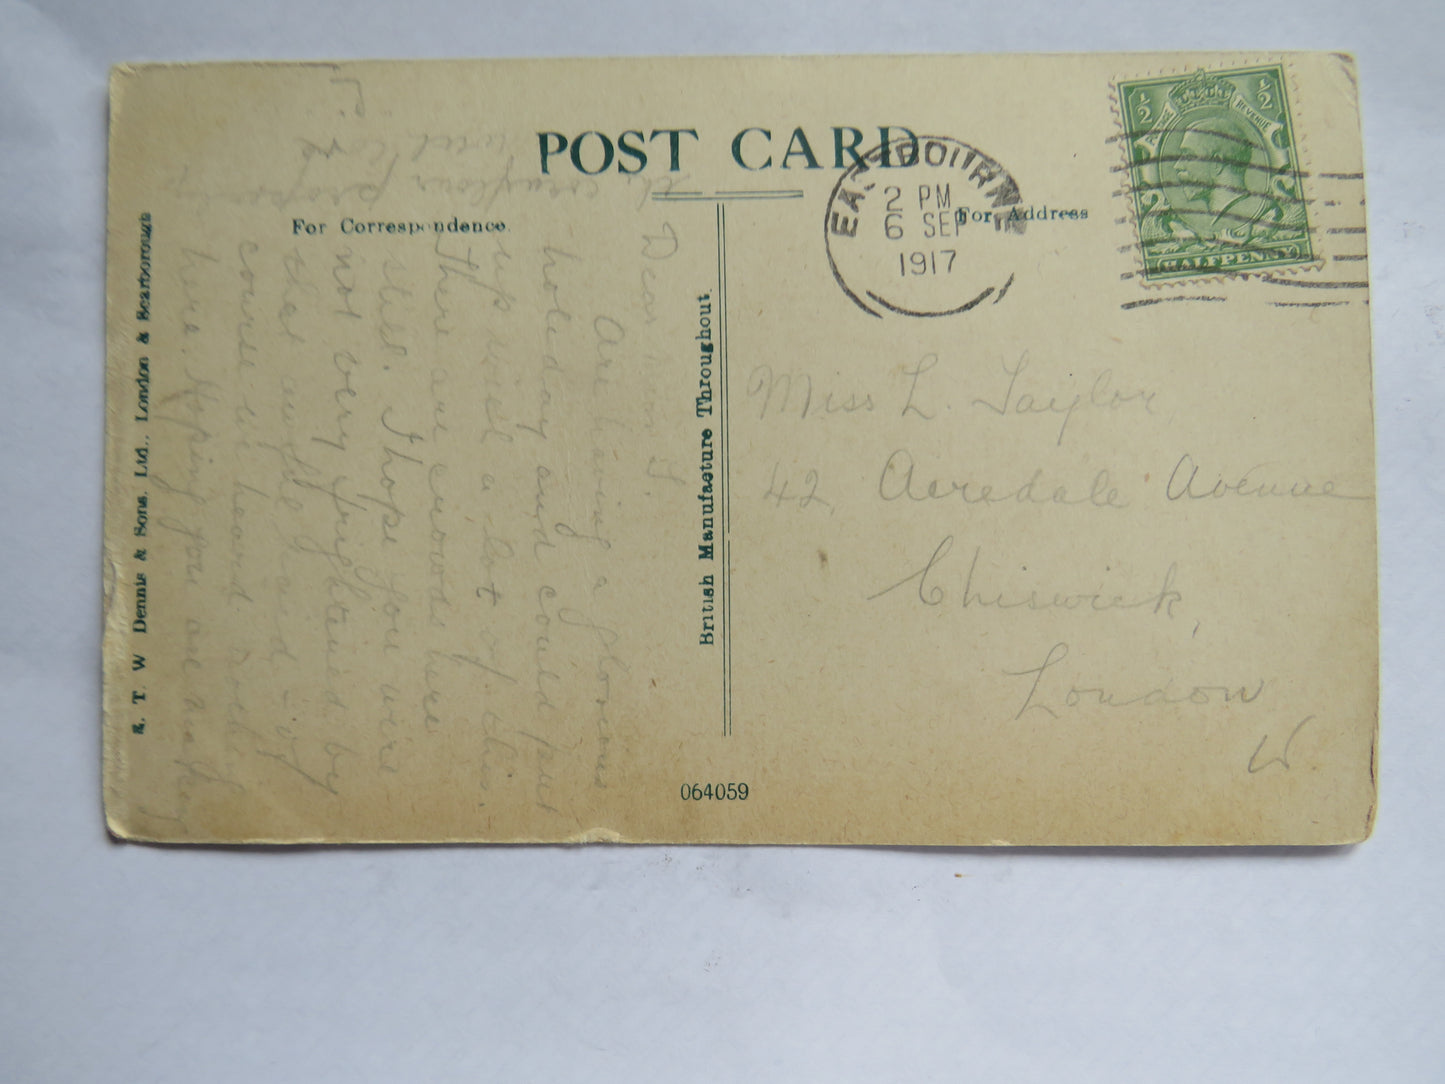 POST CARD
For Correspondence.
For Address
EASTBOURNE
2 PM
6 SEP
1917
½ ½
POSTAGE REVENUE
HALFPENNY
E. T. W Dennis & Sons, Ltd., London & Scarborough
British Manufacture Throughout.
064059
Miss L. Taylor
42, Acredale Avenue
Chiswick,
London
W
Dear Miss T.
Are having a glorious
holiday and could put
up with a lot of this.
There are crowds here
still. I hope you were
not very frightened by
that night raid - of
course we heard nothing
here. Hoping you are